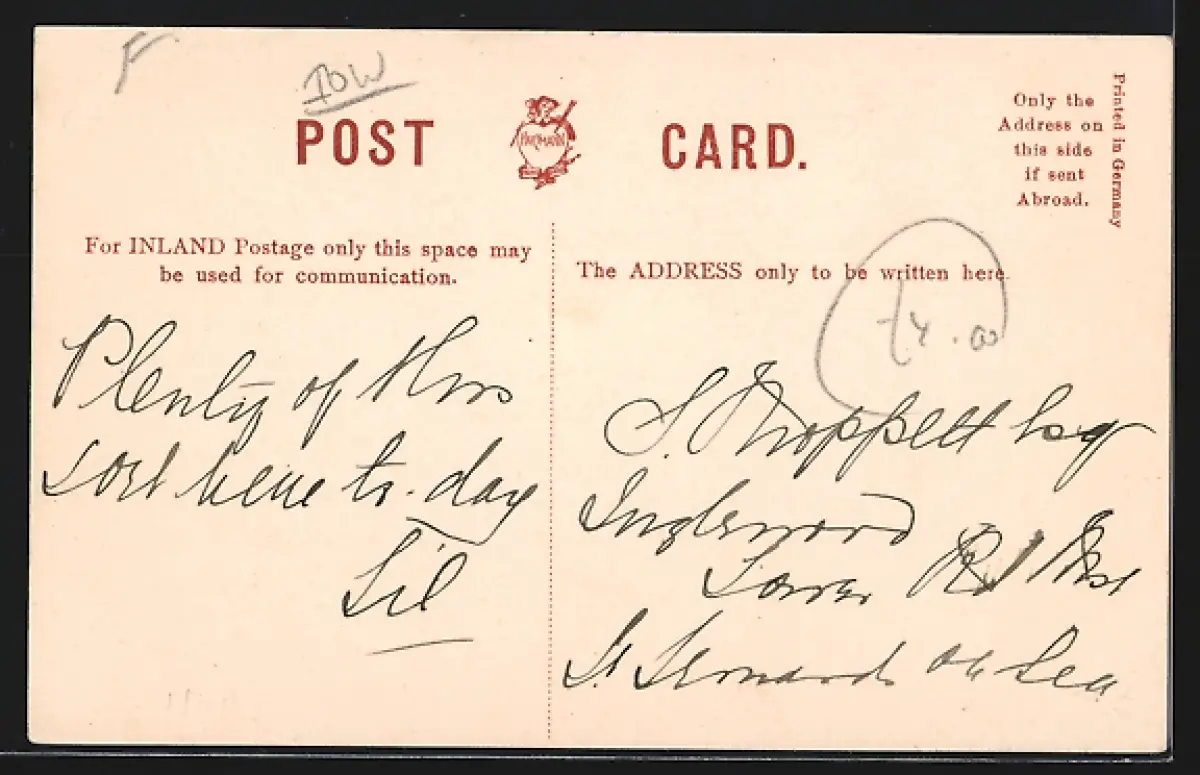 F
IOW
POST CARD.
HARTMANN
Only the
Address on
this side
if sent
Abroad.
Printed in Germany
For INLAND Postage only this space may
be used for communication.
The ADDRESS only to be written here.
Plenty of this
sort here to-day
Lil
S. Esq
Inglewood
Tower Rd West
St Leonards on Sea